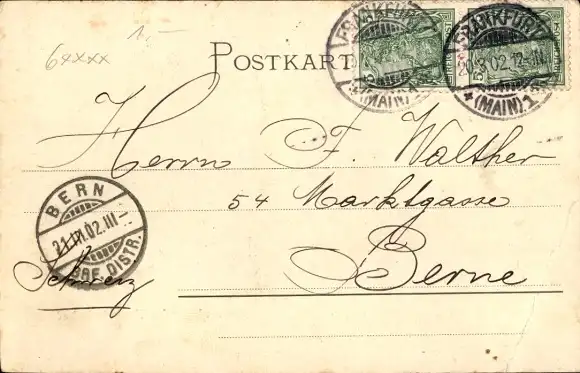 64xxx 1,-
POSTKART
FRANKFURT
(MAIN)
FRANKFURT
20.3.02.12-
* (MAIN) 1
5
5
Herrn F. Walther
54 Marktgasse
Berne
Schweiz
BERN
21.III.02.III-
BRF. DISTR.